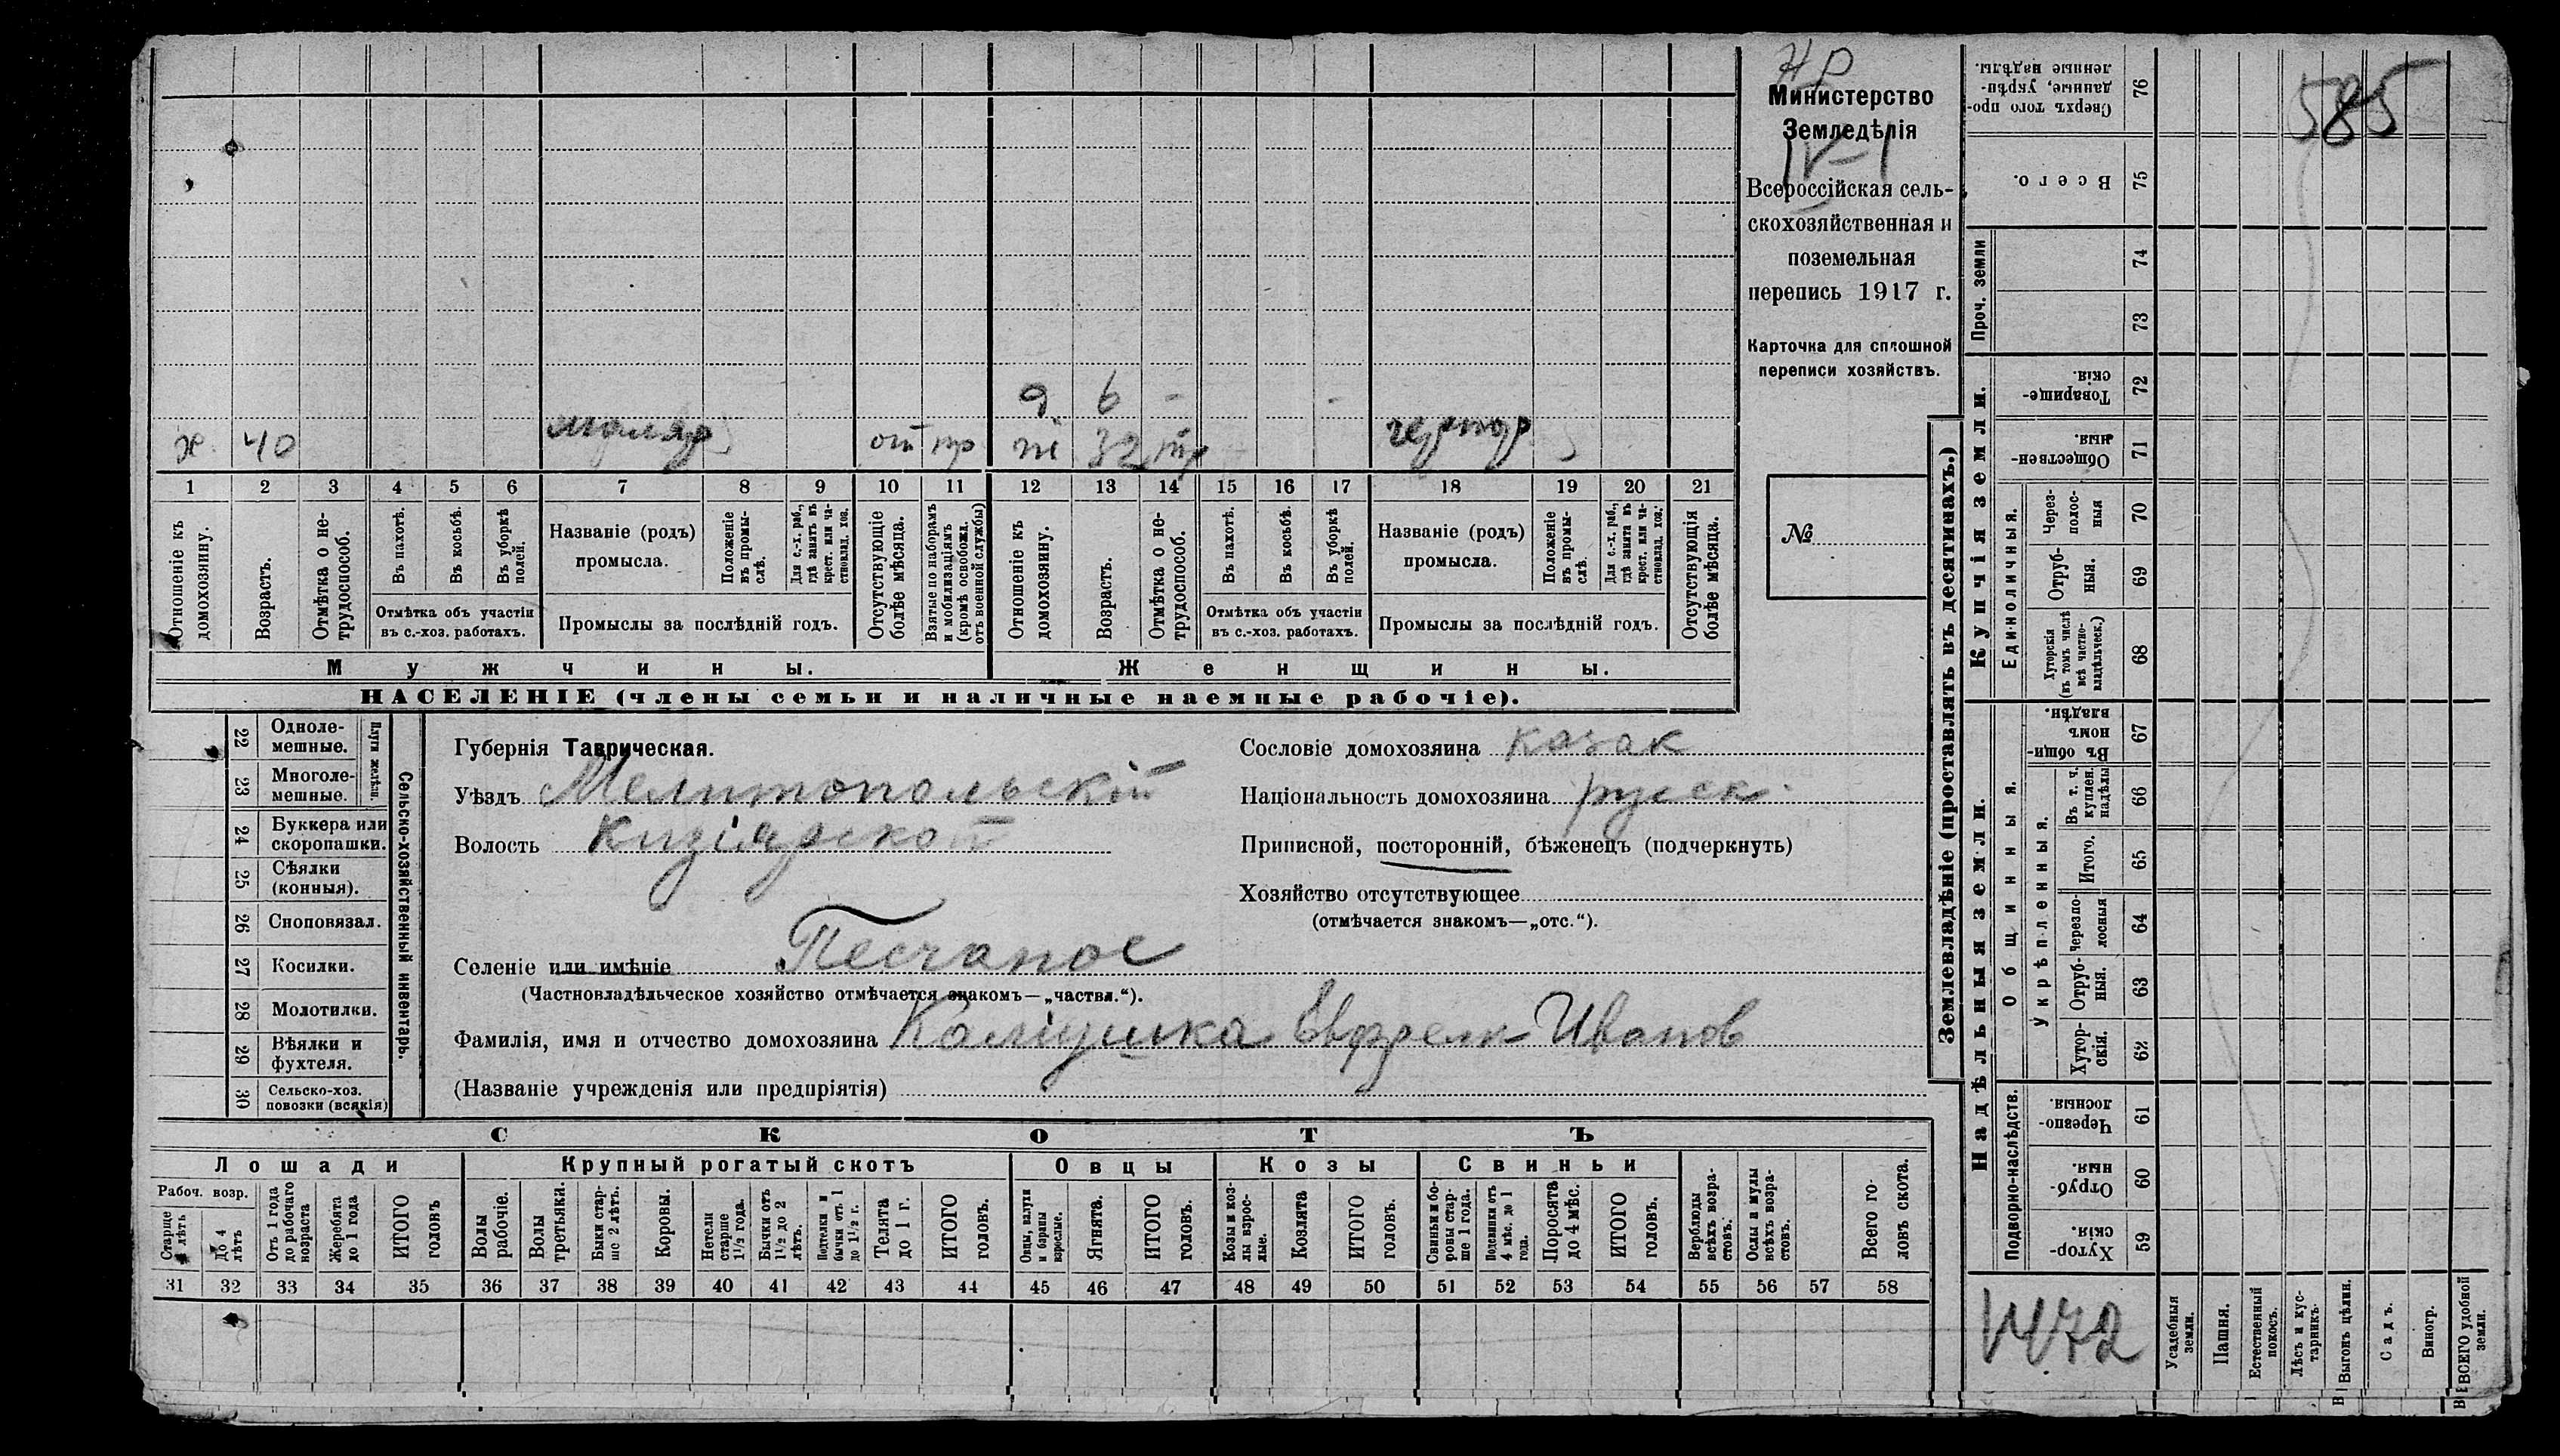 585
Министерство
Земледѣлія
IV–1
Всероссійская сель-
скохозяйственная и
поземельная
перепись 1917 г.
Карточка для сплошной
переписи хозяйствъ.
№
9 6 - -
х. 40 маляр от пр ж 32 пр
1 2 3 4 5 6 7 8 9 10 11 12 13 14 15 16 17 18 19 20 21
Отношеніе къ домохозяину.
Возрастъ.
Отмѣтка о не-трудоспособ.
Въ пахотѣ.
Въ косьбѣ.
Въ уборкѣ полей.
Отмѣтка объ участіи
въ с.-хоз. работахъ.
Названіе (родъ)
промысла.
Положеніе въ промы-слѣ.
Для с.-х. раб., гдѣ занятъ въ крест. или ча-стновлад. хоз.
Промыслы за послѣдній годъ.
Отсутствующіе болѣе мѣсяца.
Взятые по наборамъ и мобилизаціямъ (кромѣ освобожд. отъ военной службы)
Отношеніе къ домохозяину.
Возрастъ.
Отмѣтка о не-трудоспособ.
Въ пахотѣ.
Въ косьбѣ.
Въ уборкѣ полей.
Отмѣтка объ участіи
въ с.-хоз. работахъ.
Названіе (родъ)
промысла.
Положеніе въ промы-слѣ.
Для с.-х. раб., гдѣ занята въ крест. или ча-стновлад. хоз.
Промыслы за послѣдній годъ.
Отсутствующія болѣе мѣсяца.
Мужчины. Женщины.
НАСЕЛЕНІЕ (члены семьи и наличные наемные рабочіе).
22 Одноле-мешные.
23 Многоле-мешные.
Плуги желѣзн.
24 Буккера или скоропашки.
25 Сѣялки (конныя).
26 Сноповязал.
27 Косилки.
28 Молотилки.
29 Вѣялки и фухтеля.
30 Сельско-хоз. повозки (всякія)
Сельско-хозяйственный инвентарь.
Губернія Таврическая.
Уѣздъ Мелитопольскій
Волость Кизіярской
Селеніе или имѣніе Песчаное
(Частновладѣльческое хозяйство отмѣчается знакомъ—„частвл.“).
Фамилія, имя и отчество домохозяина Иванов
(Названіе учрежденія или предпріятія)
Сословіе домохозяина казак
Національность домохозяина русск.
Приписной, посторонній, бѣженецъ (подчеркнуть)
Хозяйство отсутствующее
(отмѣчается знакомъ—„отс.“).
СКОТЪ
Лошади Крупный рогатый скотъ Овцы Козы Свиньи
Рабоч. возр.
Старше 4 лѣтъ
До 4 лѣтъ
Отъ 1 года до рабочаго возраста
Жеребята до 1 года
ИТОГО головъ
Волы рабочіе.
Волы третьяки.
Быки стар-ше 2 лѣтъ.
Коровы.
Нетели старше 1½ года.
Бычки отъ 1½ до 2 лѣтъ.
Подтелки и бычки отъ 1 до 1½ г.
Телята до 1 г.
ИТОГО головъ.
Овцы, валухи и бараны взрослые.
Ягнята.
ИТОГО головъ.
Козы и коз-лы взрос-лые.
Козлята
ИТОГО головъ.
Свиньи и бо-ровы стар-ше 1 года.
Подсвинки отъ 4 мѣс. до 1 года.
Поросята до 4 мѣс.
ИТОГО головъ.
Верблюды всѣхъ возра-стовъ.
Ослы и мулы всѣхъ возра-стовъ.
Всего го-ловъ скота.
31 32 33 34 35 36 37 38 39 40 41 42 43 44 45 46 47 48 49 50 51 52 53 54 55 56 57 58
Землевладѣніе (проставлять въ десятинахъ.)
Купчія земли.
Надѣльныя земли.
Сверхъ того про-данные, укрѣп-ленные надѣлы. 76
Всего. 75
Проч. земли
74
73
Товарище-скія. 72
Обществен-ныя. 71
Единоличныя.
Через-полос-ныя 70
Отруб-ныя. 69
Хуторскія (въ томъ числѣ всѣ частно-владѣльческ.) 68
Общинныя.
Въ общи-номъ владѣн. 67
Укрѣпленныя.
Въ т. ч. куплен. надѣлы 66
Итого. 65
Черезпо-лосныя 64
Отруб-ныя. 63
Хутор-скія. 62
Подворно-наслѣдств.
Черезпо-лосныя. 61
Отруб-ныя. 60
Хутор-скія. 59
1472
Усадебныя земли.
Пашня.
Естественный покосъ.
Лѣсъ и кус-тарникъ.
Выгонъ цѣлин.
Садъ.
Виногр.
ВСЕГО удобной земли.